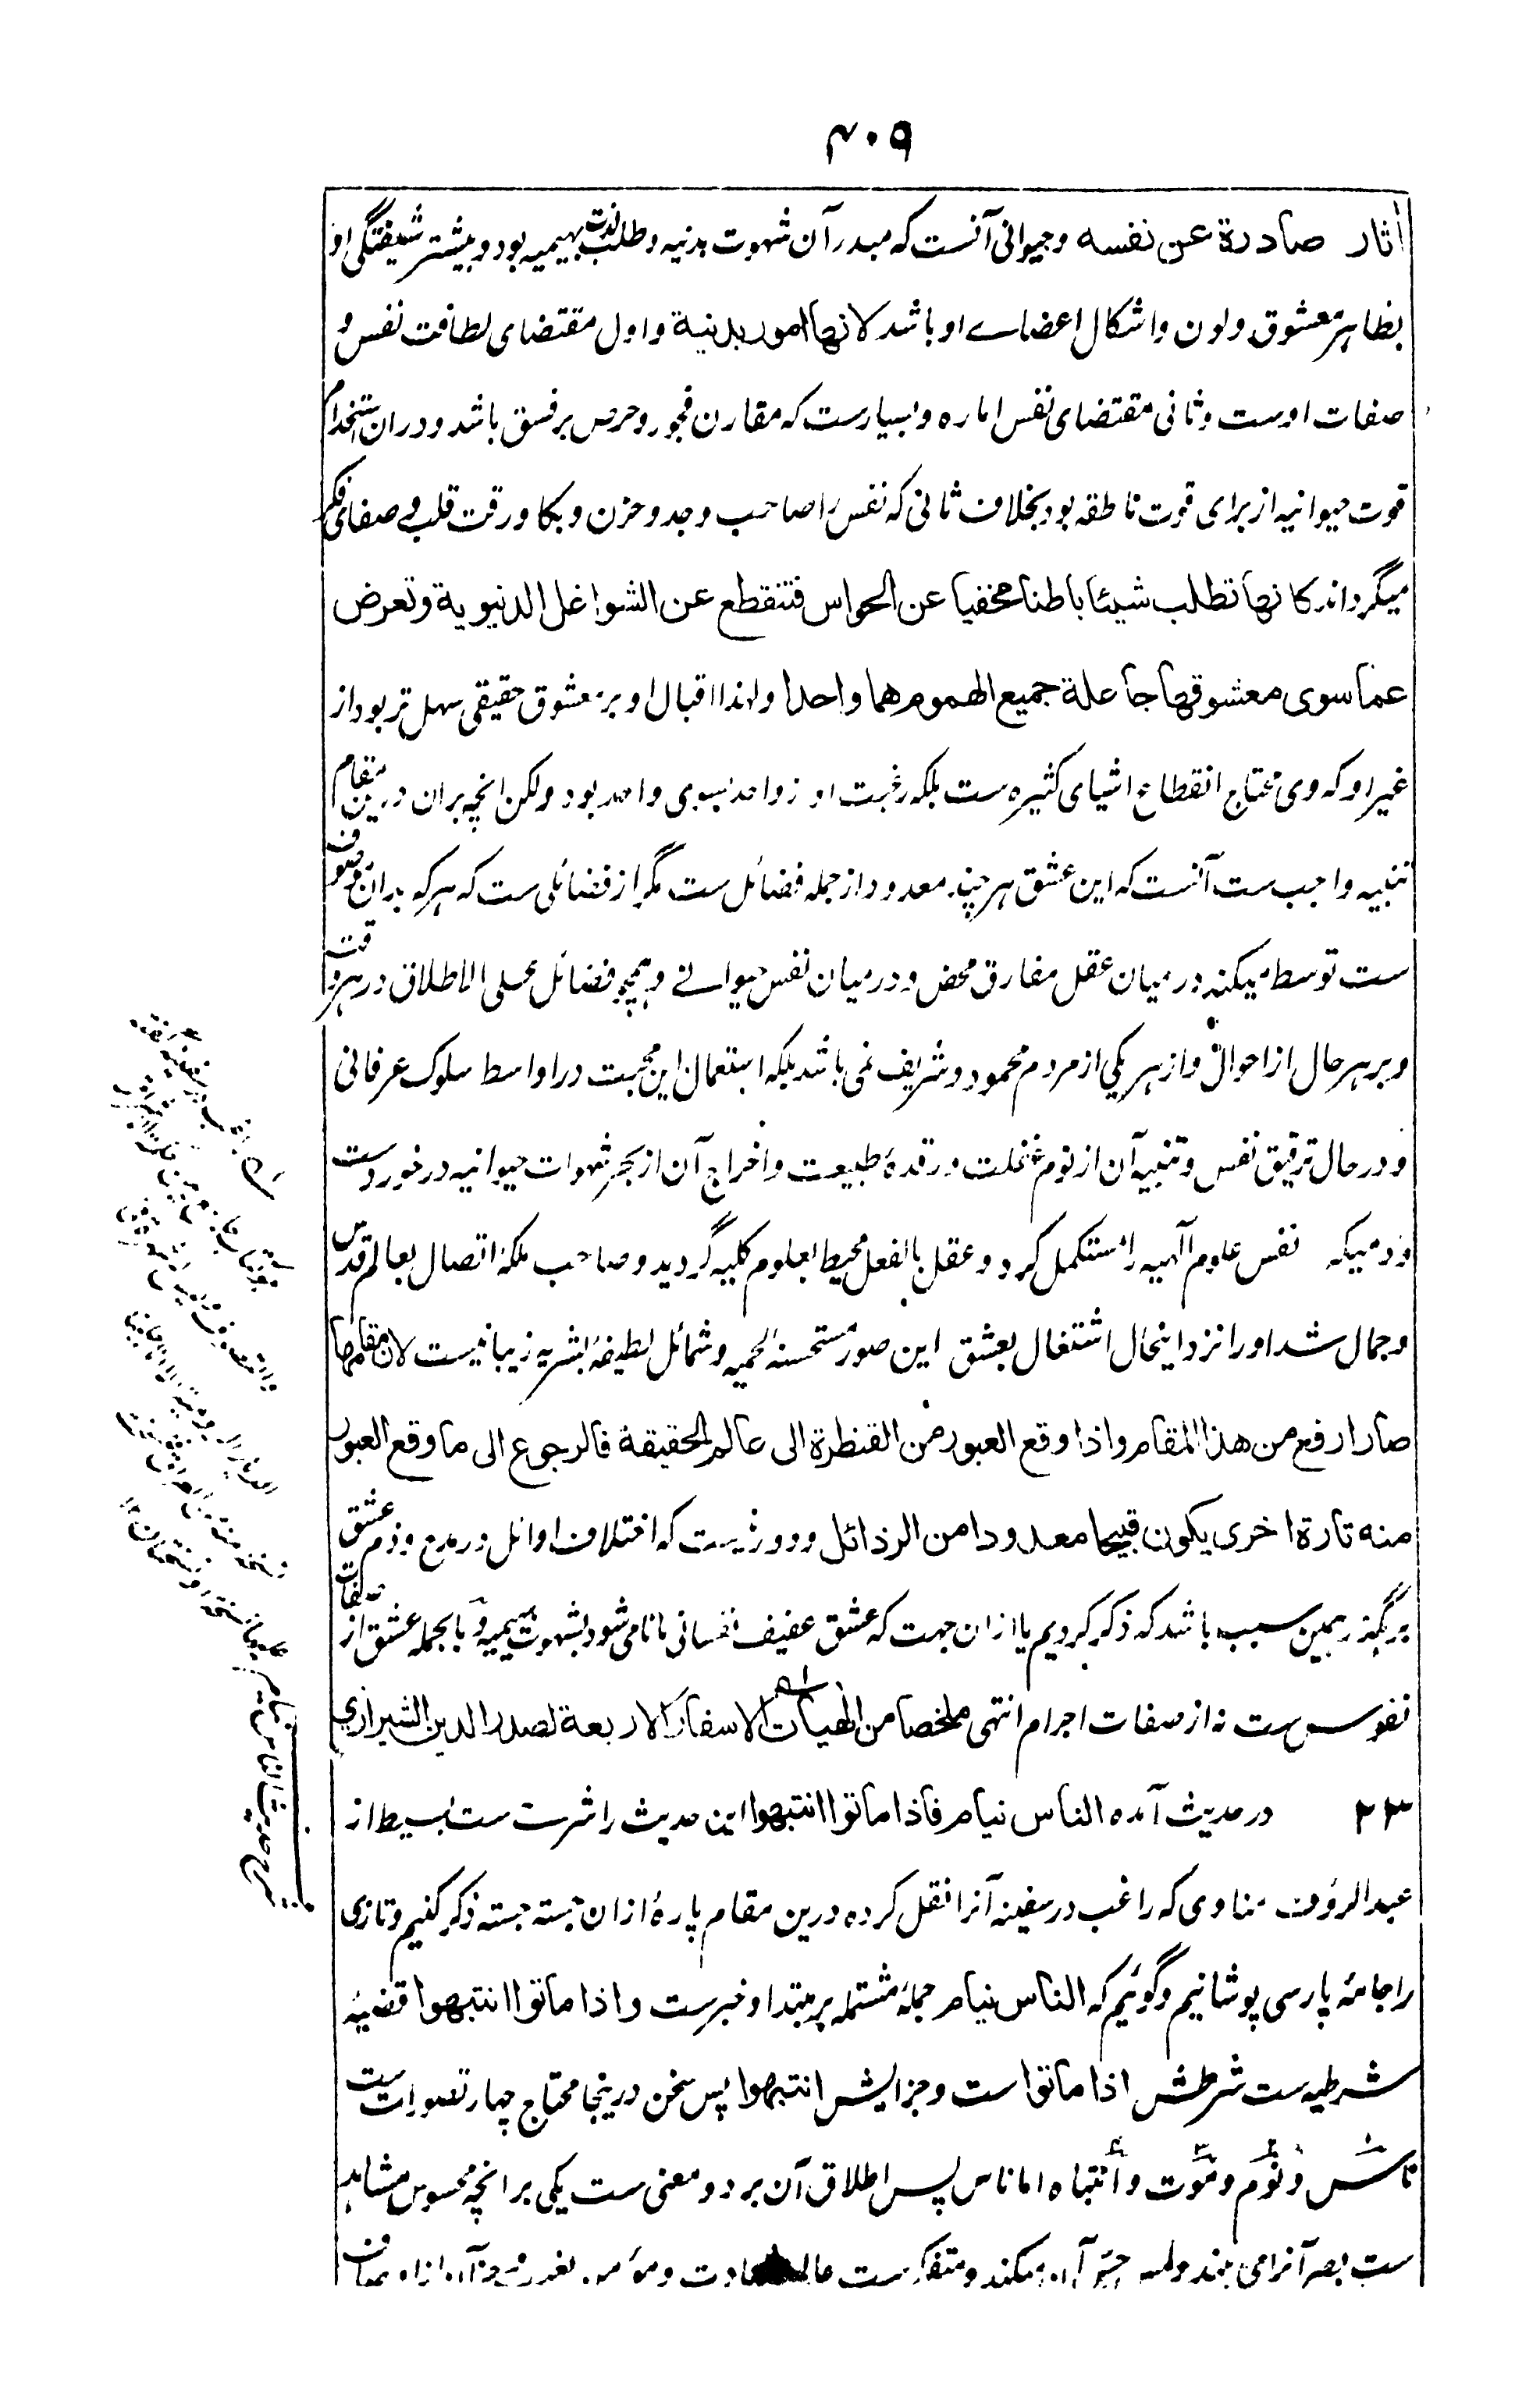 ۴۰۹
اثار صادرة عن نفسه وحیوانی آنست که مبدر آن شهوت بدنیه وطلب لذت بهیمیه بود و بیشتر شیفتگی او
بظاهر معشوق ولون واشکال اعضاے او باشد لانها امور بدنیة واول مقتضای لطافت نفس و
صفات اوست وثانی مقتضای نفس اماره وبسیارست که مقارن فجور وحرص بر فسق باشد ودران استخدام
قوت حیوانیه از برای قوت ناطقه بود بخلاف ثانی که نفس را صاحب وجد وحزن وبکا ورقت قلب وصفای فکر
میگرداند کانها تطلب شیئا باطنا مخفیا عن الحواس فتنقطع عن الشواغل الدنیویة وتعرض
عما سوی معشوقها جاعلة جمیع الهموم هما واحدا ولهذا اقبال او بر معشوق حقیقی سهل تر بود از
غیر او که وی محتاج انقطاع اشیای کثیره ست بلکه رغبت او از واحد بسوی واحد بود ولکن انچه بران درین مقام
تنبیه واجب ست آنست که این عشق هر چند معدود از جمله فضائل ست مگر از فضائلی ست که هر که بدان موصوف
ست توسط میکند در میان عقل مفارق محض ودر میان نفس حیوانے وهمچو فضائل علی الاطلاق در هر وقت
وبر هر حال از احوال واز هر یکی از مردم محمود وشریف نمی باشد بلکه استعمال این محبت در اواسط سلوک عرفانی
ودر حال ترقیق نفس وتنبیه آن از نوم غفلت ورقدهٔ طبیعت واخراج آن از بحر شهوات حیوانیه در خورست
ودمیکه نفس علوم آلهیه را مستکمل کرد وعقل بالفعل محیط بعلوم کلیه گردید وصاحب ملکهٔ اتصال بعالم قدس
وجمال شد او را نزد اینحال اشتغال بعشق این صور مستحسنهٔ لحمیه وشمائل لطیفهٔ بشریه زیبا نیست لان مقامها
صار ارفع من هذا المقام واذا وقع العبور من القنطرة الی عالم الحقیقة فالرجوع الی ما وقع العبور
منه تارة اخری یکون قبیحا معدودا من الرذائل ودور نیست که اختلاف اوائل در مدح وذم عشق
بهمین سبب باشد که ذکر کردیم یا ازان جهت که عشق عفیف نفسانی مانا می شود بشهوت بهیمیه وبالجمله عشق از صفات
نفوس ست نه از صفات اجرام انتهی ملخصا من الهیات الاسفار الاربعة لصدر الدین الشیرازی
۲۳ در حدیث آمده الناس نیام فاذا ماتوا انتبهوا این حدیث را شرح ست بسیط از
عبد الرؤف مناوی که راغب در سفینه آنرا نقل کرده درین مقام پارهٔ ازان جسته جسته ذکر کنیم وتازی
را جامهٔ پارسی پوشانیم وگوئیم که الناس نیام جملهٔ مشتمله بر مبتدا وخبرست واذا ماتوا انتبهوا قضیهٔ
شرطیه ست شرطش اذا ماتوا است وجزایش انتبهوا پس سخن درینجا محتاج چهار تصورات ست
ناس ونوم وموت وانتباه اما ناس پس اطلاق آن بر دو معنی ست یکی بر انچه محسوس مشاهد
ست بصر آنرا می بیند ولمس
شرح حدیث الناس نیام